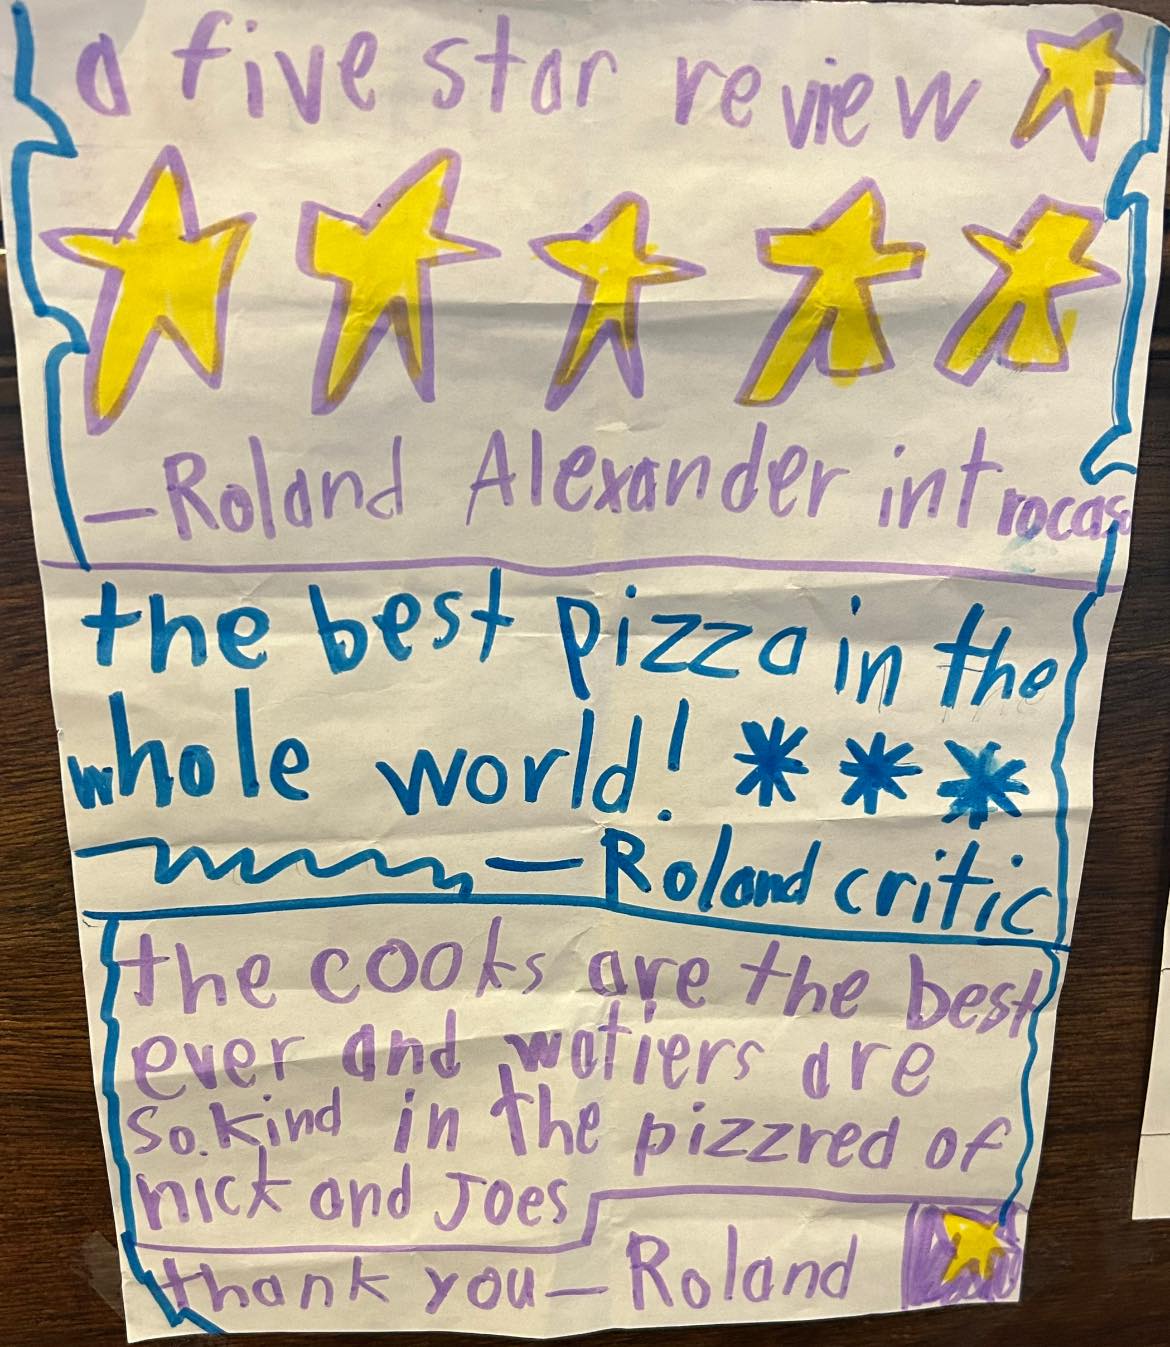 a five star review
—Roland Alexander introcaso
the best pizza in the
whole world! ***
—Roland critic
the cooks are the best
ever and watiers are
so. kind in the pizzred of
nick and Joes
thank you—Roland